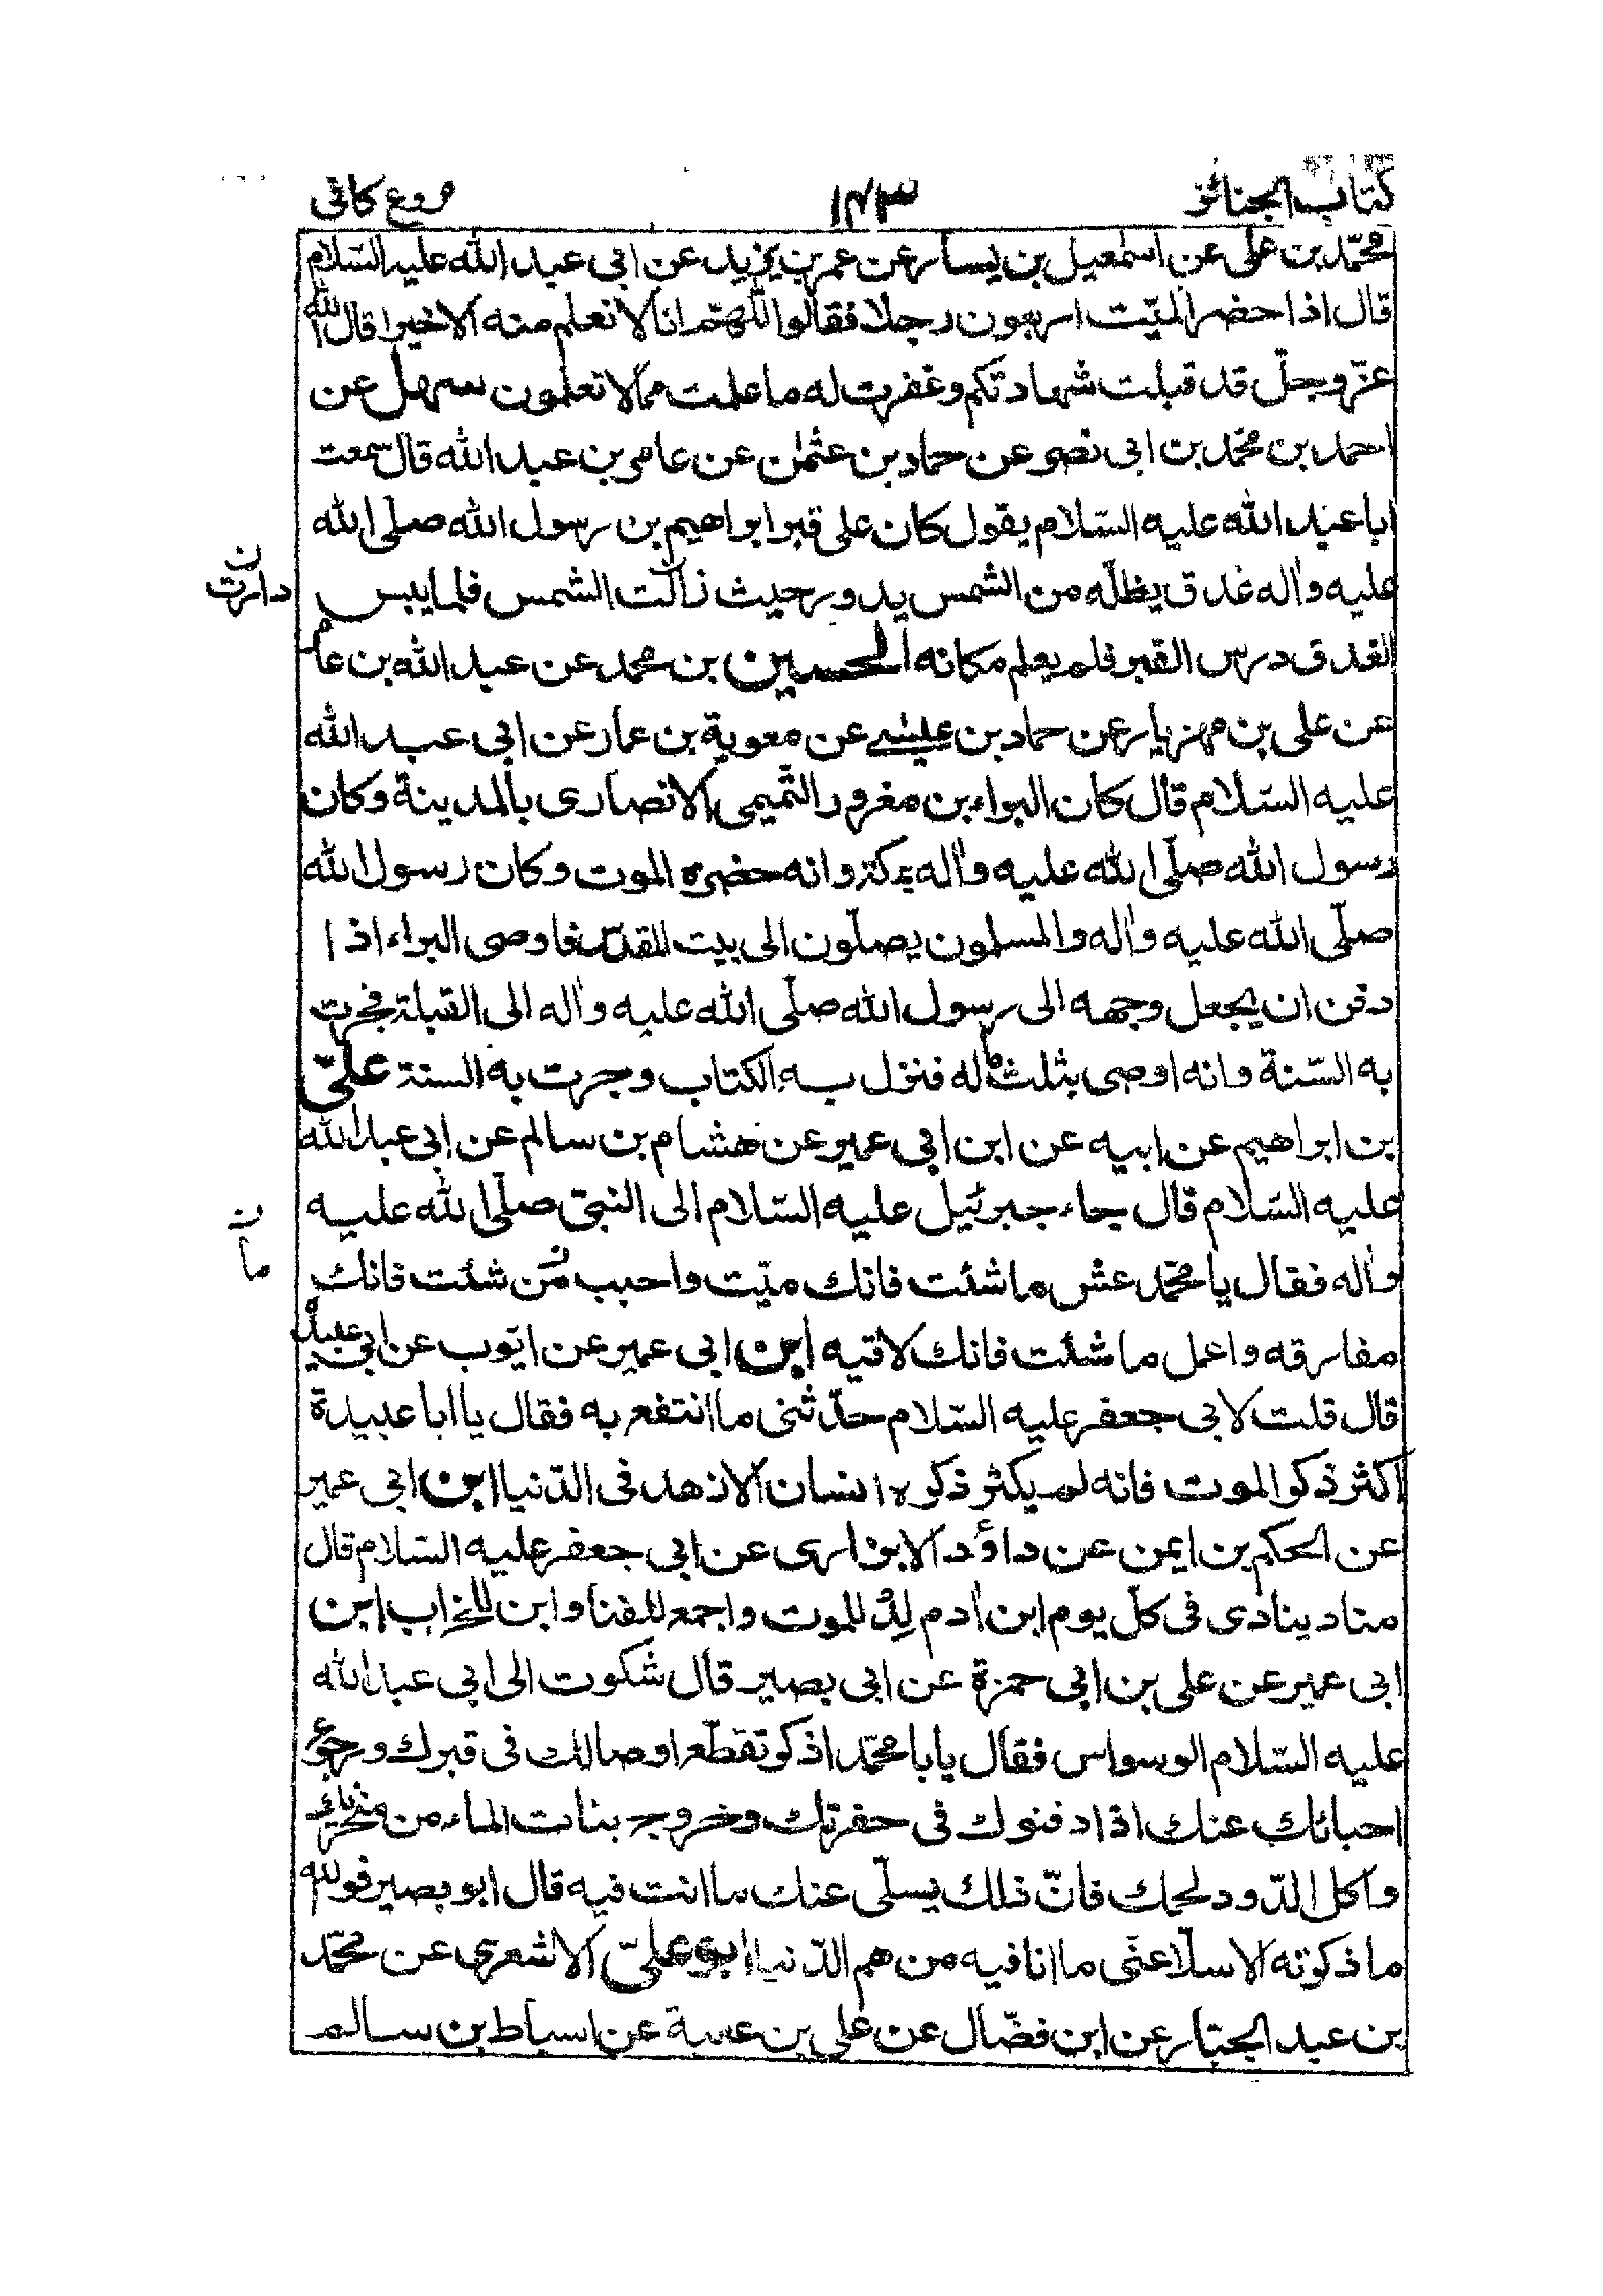 كتاب الجنائز ١٤٣ فروع كافى
محمّد بن على عن اسمٰعيل بن يسار عن عمر بن يزيد عن ابى عبد الله عليه السّلام
قال اذا حضر الميّت اربعون رجلا فقالوا اللّهمّ انا لا نعلم منه الا خيرا قال الله
عزّ وجلّ قد قبلت شهادتكم وغفرت له ما علمت ممالا تعلمون سهل عن
احمد بن محمّد بن ابى نصر عن حماد بن عثمٰن عن عامر بن عبد الله قال سمعت
ابا عبد الله عليه السّلام يقول كان على قبر ابراهيم بن رسول الله صلّى الله
عليه واٰله غدق يظلّه من الشمس يدور حيث زالت الشمس فلما يبس
ن
دارت
الغدق درس القبر فلم يعلم مكانه الحسين بن محمد عن عبد الله بن عامر
عن على بن مهزيار عن حماد بن عيسٰى عن معوية بن عمار عن ابى عبد الله
عليه السّلام قال كان البراء بن مغرور التّميمى الانصارى بالمدينة وكان
رسول الله صلّى الله عليه واٰله بمكة وانه حضره الموت وكان رسول الله
صلّى الله عليه واٰله والمسلمون يصلّون الى بيت المقدّس فاوصى البراء اذا
دفن ان يجعل وجهه الى رسول الله صلّى الله عليه واٰله الى القبلة فجرت
به السّنة وانه اوصى بثلث ماله فنزل به الكتاب وجرت به السنة علىّ
بن ابراهيم عن ابيه عن ابن ابى عمير عن هشام بن سالم عن ابى عبد الله
عليه السّلام قال جاء جبرئيل عليه السّلام الى النبىّ صلّى الله عليه
ن
ما
واٰله فقال يا محمّد عش ما شئت فانك ميّت واحبب من شئت فانك
مفارقه واعمل ما شئت فانك لاقيه ابن ابى عمير عن ايّوب عن ابى عبيدة
قال قلت لابى جعفر عليه السّلام حدّثنى ما انتفع به فقال يا ابا عبيدة
اكثر ذكر الموت فانه لم يكثر ذكره انسان الا زهد فى الدّنيا ابن ابى عمير
عن الحكم بن ايمن عن داؤد الابزارى عن ابى جعفر عليه السّلام قال
مناد ينادى فى كلّ يوم ابن اٰدم لِدْ للموت واجمع للفنا وابن للخراب ابن
ابى عمير عن على بن ابى حمزة عن ابى بصير قال شكوت الى ابى عبد الله
عليه السّلام الوسواس فقال يا با محمّد اذكر تقطّع اوصالك فى قبرك ورجوع
احبائك عنك اذا دفنوك فى حفرتك وخروج بنات الماء من منخريك
واكل الدّود لحمك فانّ ذلك يسلّى عنك ما انت فيه قال ابو بصير فو الله
ما ذكرته الا سلّا عنّى ما انا فيه من هم الدّنيا ابو علىّ الاشعرى عن محمّد
بن عبد الجبّار عن ابن فضّال عن على بن عقبة عن اسباط بن سالم